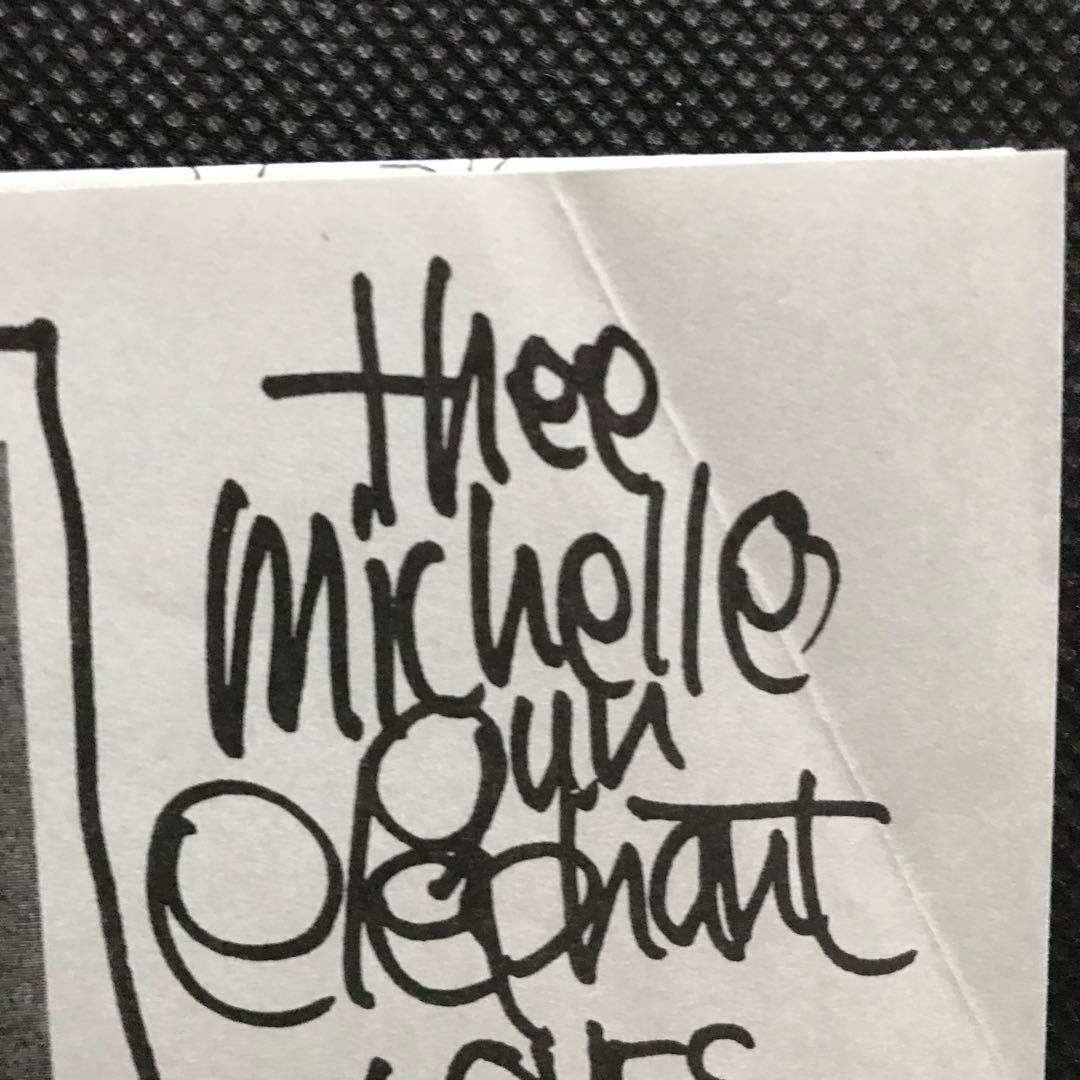 thee
michelle
gun
elephant